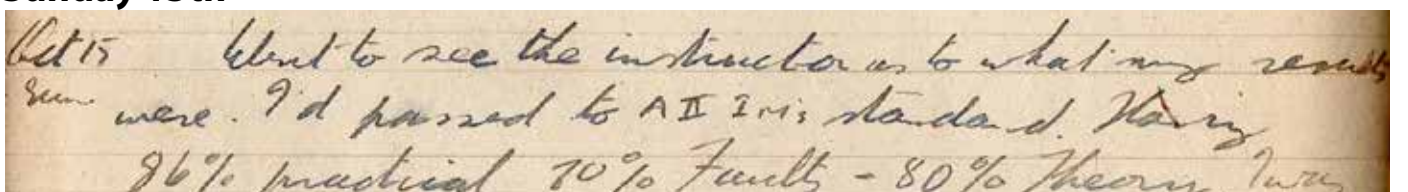 Oct 15 Went to see the instructor as to what my results
Sun. were. I'd passed to A II standard. Having
86% practical 70% Faults - 80% Theory I was